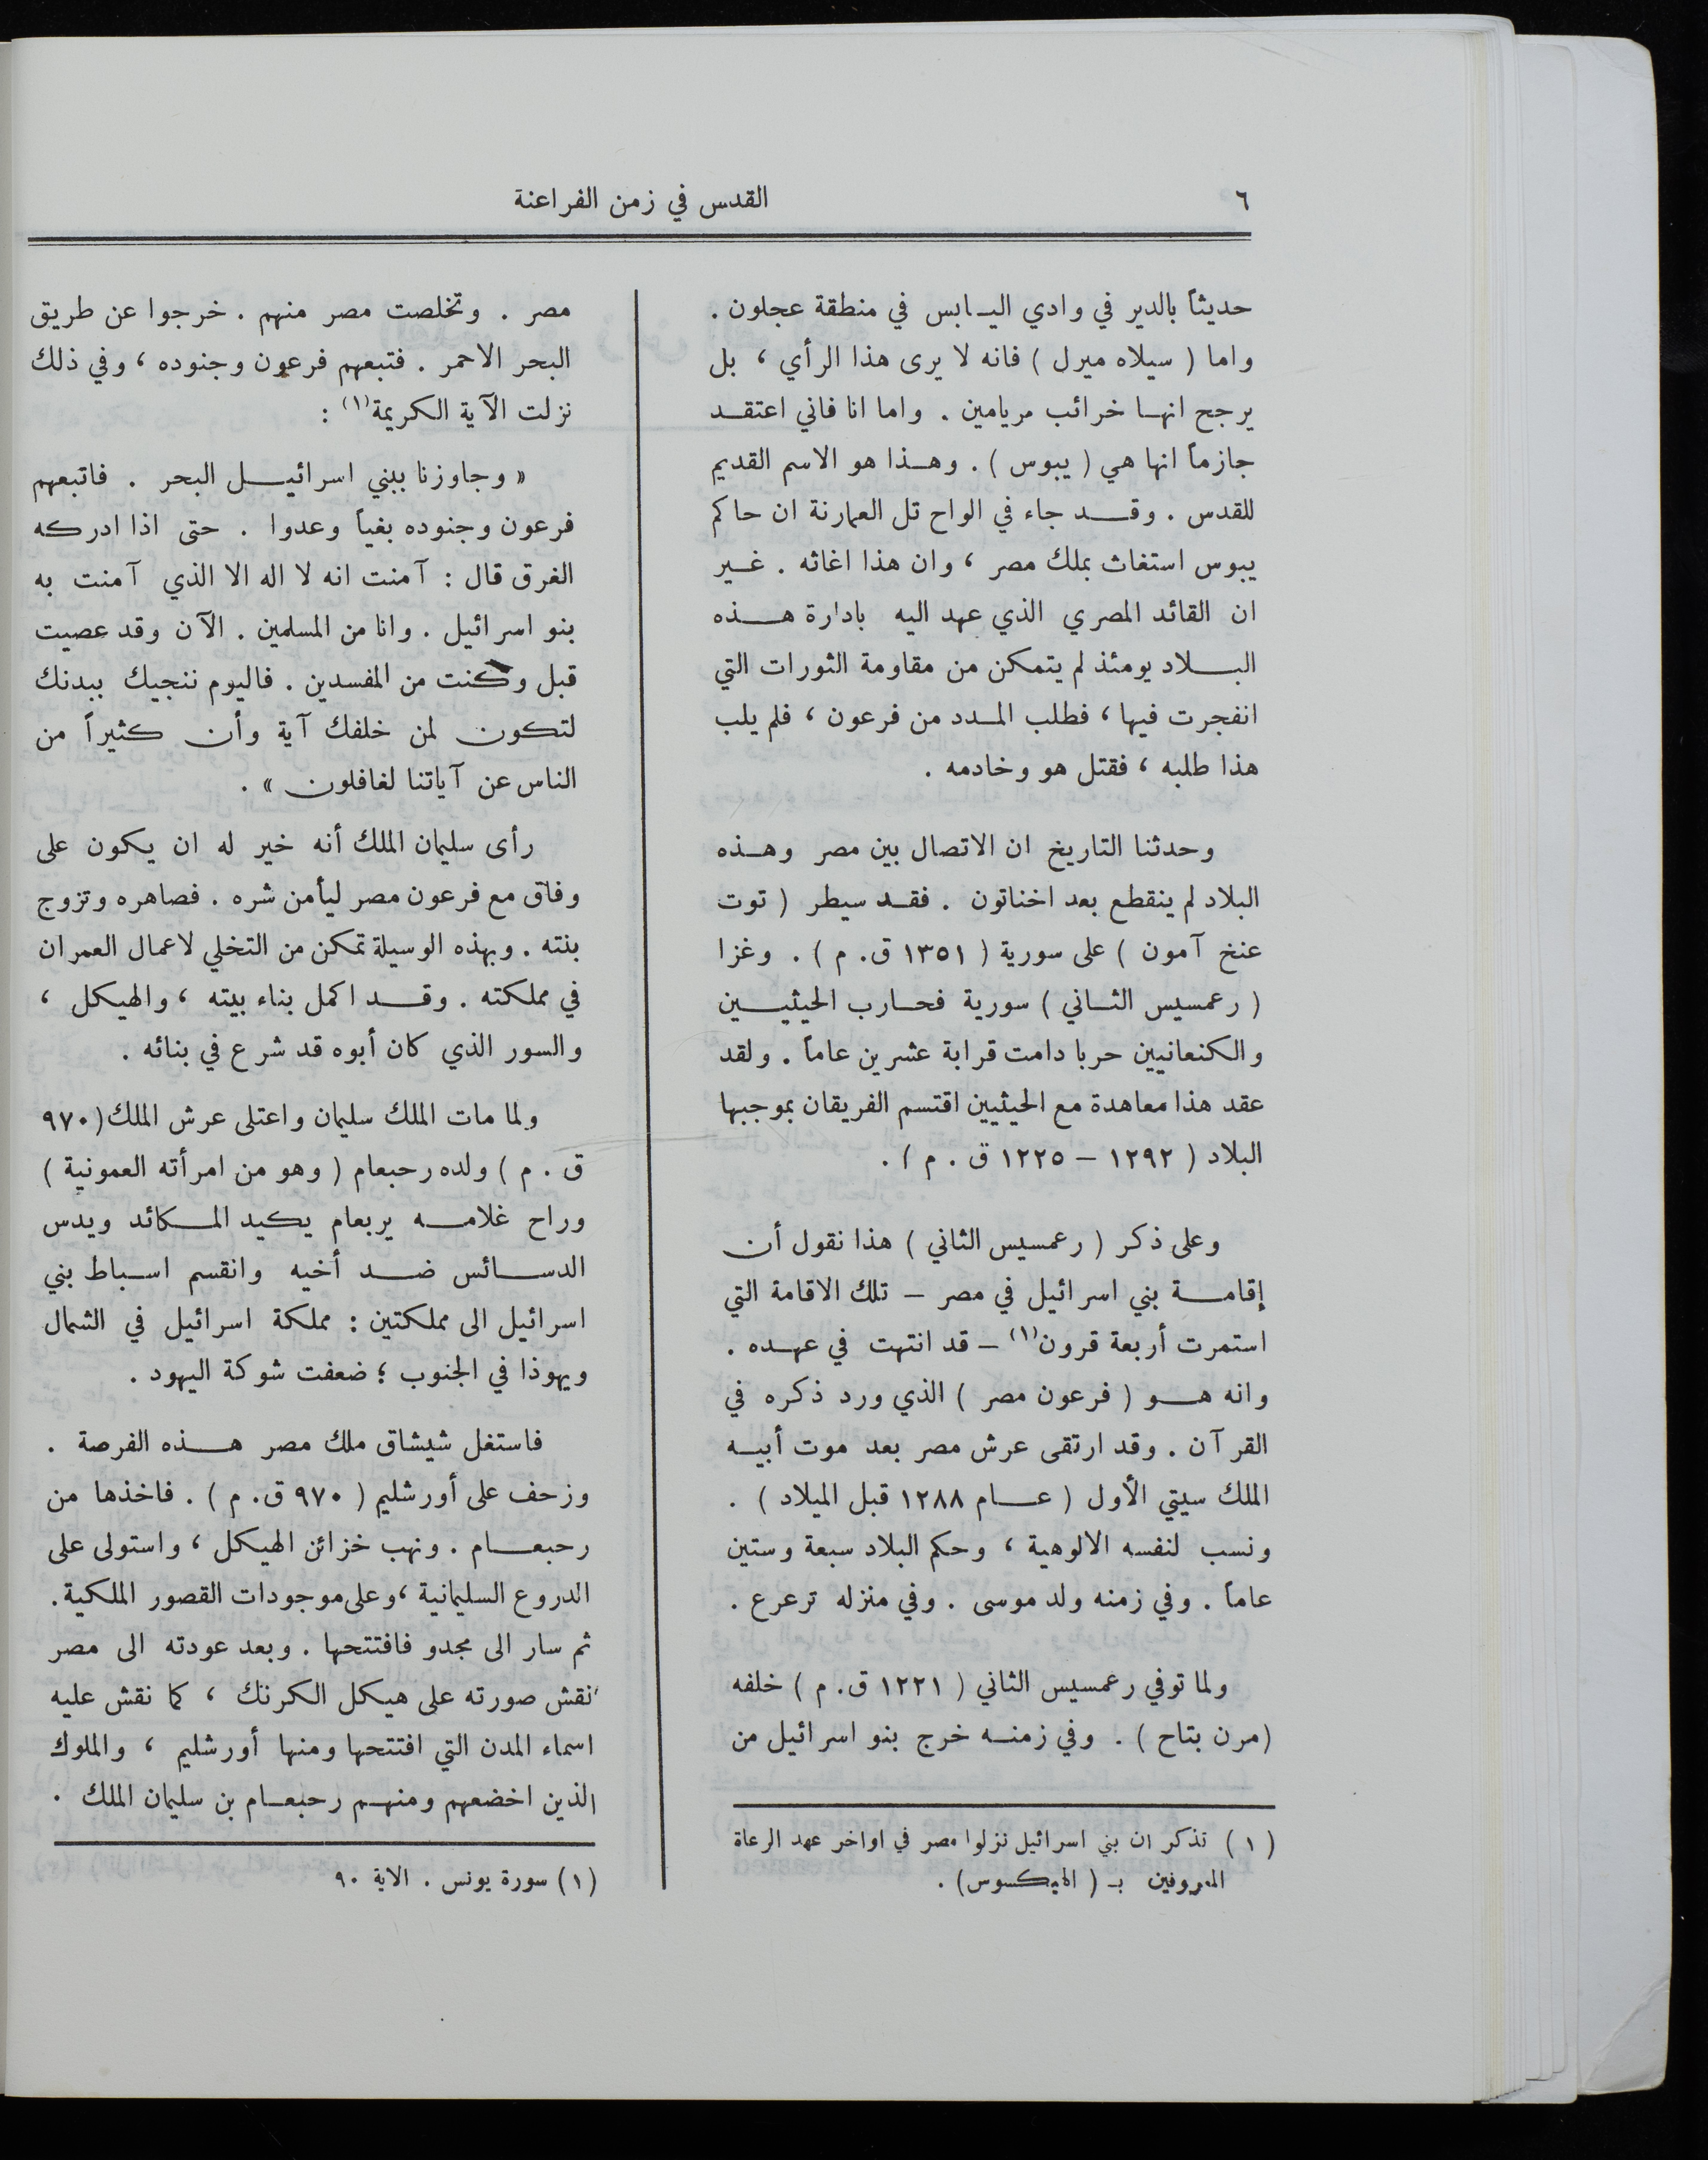 ٦
القدس في زمن الفراعنة
حديثاً بالدير في وادي اليابس في منطقة عجلون .
واما ( سيلاه ميرل ) فانه لا يرى هذا الرأي ، بل
يرجح انها خرائب مريامين . واما انا فاني اعتقد
جازماً انها هي ( يبوس ) . وهذا هو الاسم القديم
للقدس . وقد جاء في الواح تل العمارنة ان حاكم
يبوس استغاث بملك مصر ، وان هذا اغاثه . غير
ان القائد المصري الذي عهد اليه بادارة هذه
البلاد يومئذ لم يتمكن من مقاومة الثورات التي
انفجرت فيها ، فطلب المدد من فرعون ، فلم يلب
هذا طلبه ، فقتل هو وخادمه .
وحدثنا التاريخ ان الاتصال بين مصر وهذه
البلاد لم ينقطع بعد اخناتون . فقد سيطر ( توت
عنخ آمون ) على سورية ( ١٣٥١ ق. م ) . وغزا
( رعمسيس الثاني ) سورية فحارب الحيثيين
والكنعانيين حربا دامت قرابة عشرين عاماً . ولقد
عقد هذا معاهدة مع الحيثيين اقتسم الفريقان بموجبها
البلاد ( ١٢٩٢ – ١٢٢٥ ق . م ) .
وعلى ذكر ( رعمسيس الثاني ) هذا نقول أن
إقامة بني اسرائيل في مصر – تلك الاقامة التي
استمرت أربعة قرون(١) – قد انتهت في عهده .
وانه هو ( فرعون مصر ) الذي ورد ذكره في
القرآن . وقد ارتقى عرش مصر بعد موت أبيه
الملك سيتي الأول ( عام ١٢٨٨ قبل الميلاد ) .
ونسب لنفسه الالوهية ، وحكم البلاد سبعة وستين
عاماً . وفي زمنه ولد موسى . وفي منزله ترعرع .
ولما توفي رعمسيس الثاني ( ١٢٢١ ق. م ) خلفه
(مرن بتاح ) . وفي زمنه خرج بنو اسرائيل من
( ١ ) تذكر ان بني اسرائيل نزلوا مصر في اواخر عهد الرعاة
المعروفين بـ ( الهيكسوس) .
مصر . وتخلصت مصر منهم . خرجوا عن طريق
البحر الاحمر . فتبعهم فرعون وجنوده ، وفي ذلك
نزلت الآية الكريمة(١) :
« وجاوزنا ببني اسرائيل البحر . فاتبعهم
فرعون وجنوده بغياً وعدوا . حتى اذا ادركه
الغرق قال : آمنت انه لا اله الا الذي آمنت به
بنو اسرائيل . وانا من المسلمين . الآن وقد عصيت
قبل وكنت من المفسدين . فاليوم ننجيك ببدنك
لتكون لمن خلفك آية وأن كثيراً من
الناس عن آياتنا لغافلون » .
رأى سليمان الملك أنه خير له ان يكون على
وفاق مع فرعون مصر ليأمن شره . فصاهره وتزوج
بنته . وبهذه الوسيلة تمكن من التخلي لاعمال العمران
في مملكته . وقد اكمل بناء بيته ، والهيكل ،
والسور الذي كان أبوه قد شرع في بنائه .
ولما مات الملك سليمان واعتلى عرش الملك ( ٩٧٠
ق . م ) ولده رحبعام ( وهو من امرأته العمونية )
وراح غلامه يربعام يكيد المكائد ويدس
الدسائس ضد أخيه وانقسم اسباط بني
اسرائيل الى مملكتين : مملكة اسرائيل في الشمال
ويهوذا في الجنوب ؛ ضعفت شوكة اليهود .
فاستغل شيشاق ملك مصر هذه الفرصة .
وزحف على أورشليم ( ٩٧٠ ق. م ) . فاخذها من
رحبعام . ونهب خزائن الهيكل ، واستولى على
الدروع السليمانية ، وعلى موجودات القصور الملكية .
ثم سار الى مجدو فافتتحها . وبعد عودته الى مصر
نقش صورته على هيكل الكرنك ، كما نقش عليه
اسماء المدن التي افتتحها ومنها أورشليم ، والملوك
الذين اخضعهم ومنهم رحبعام بن سليمان الملك .
(١) سورة يونس . الاية ٩٠